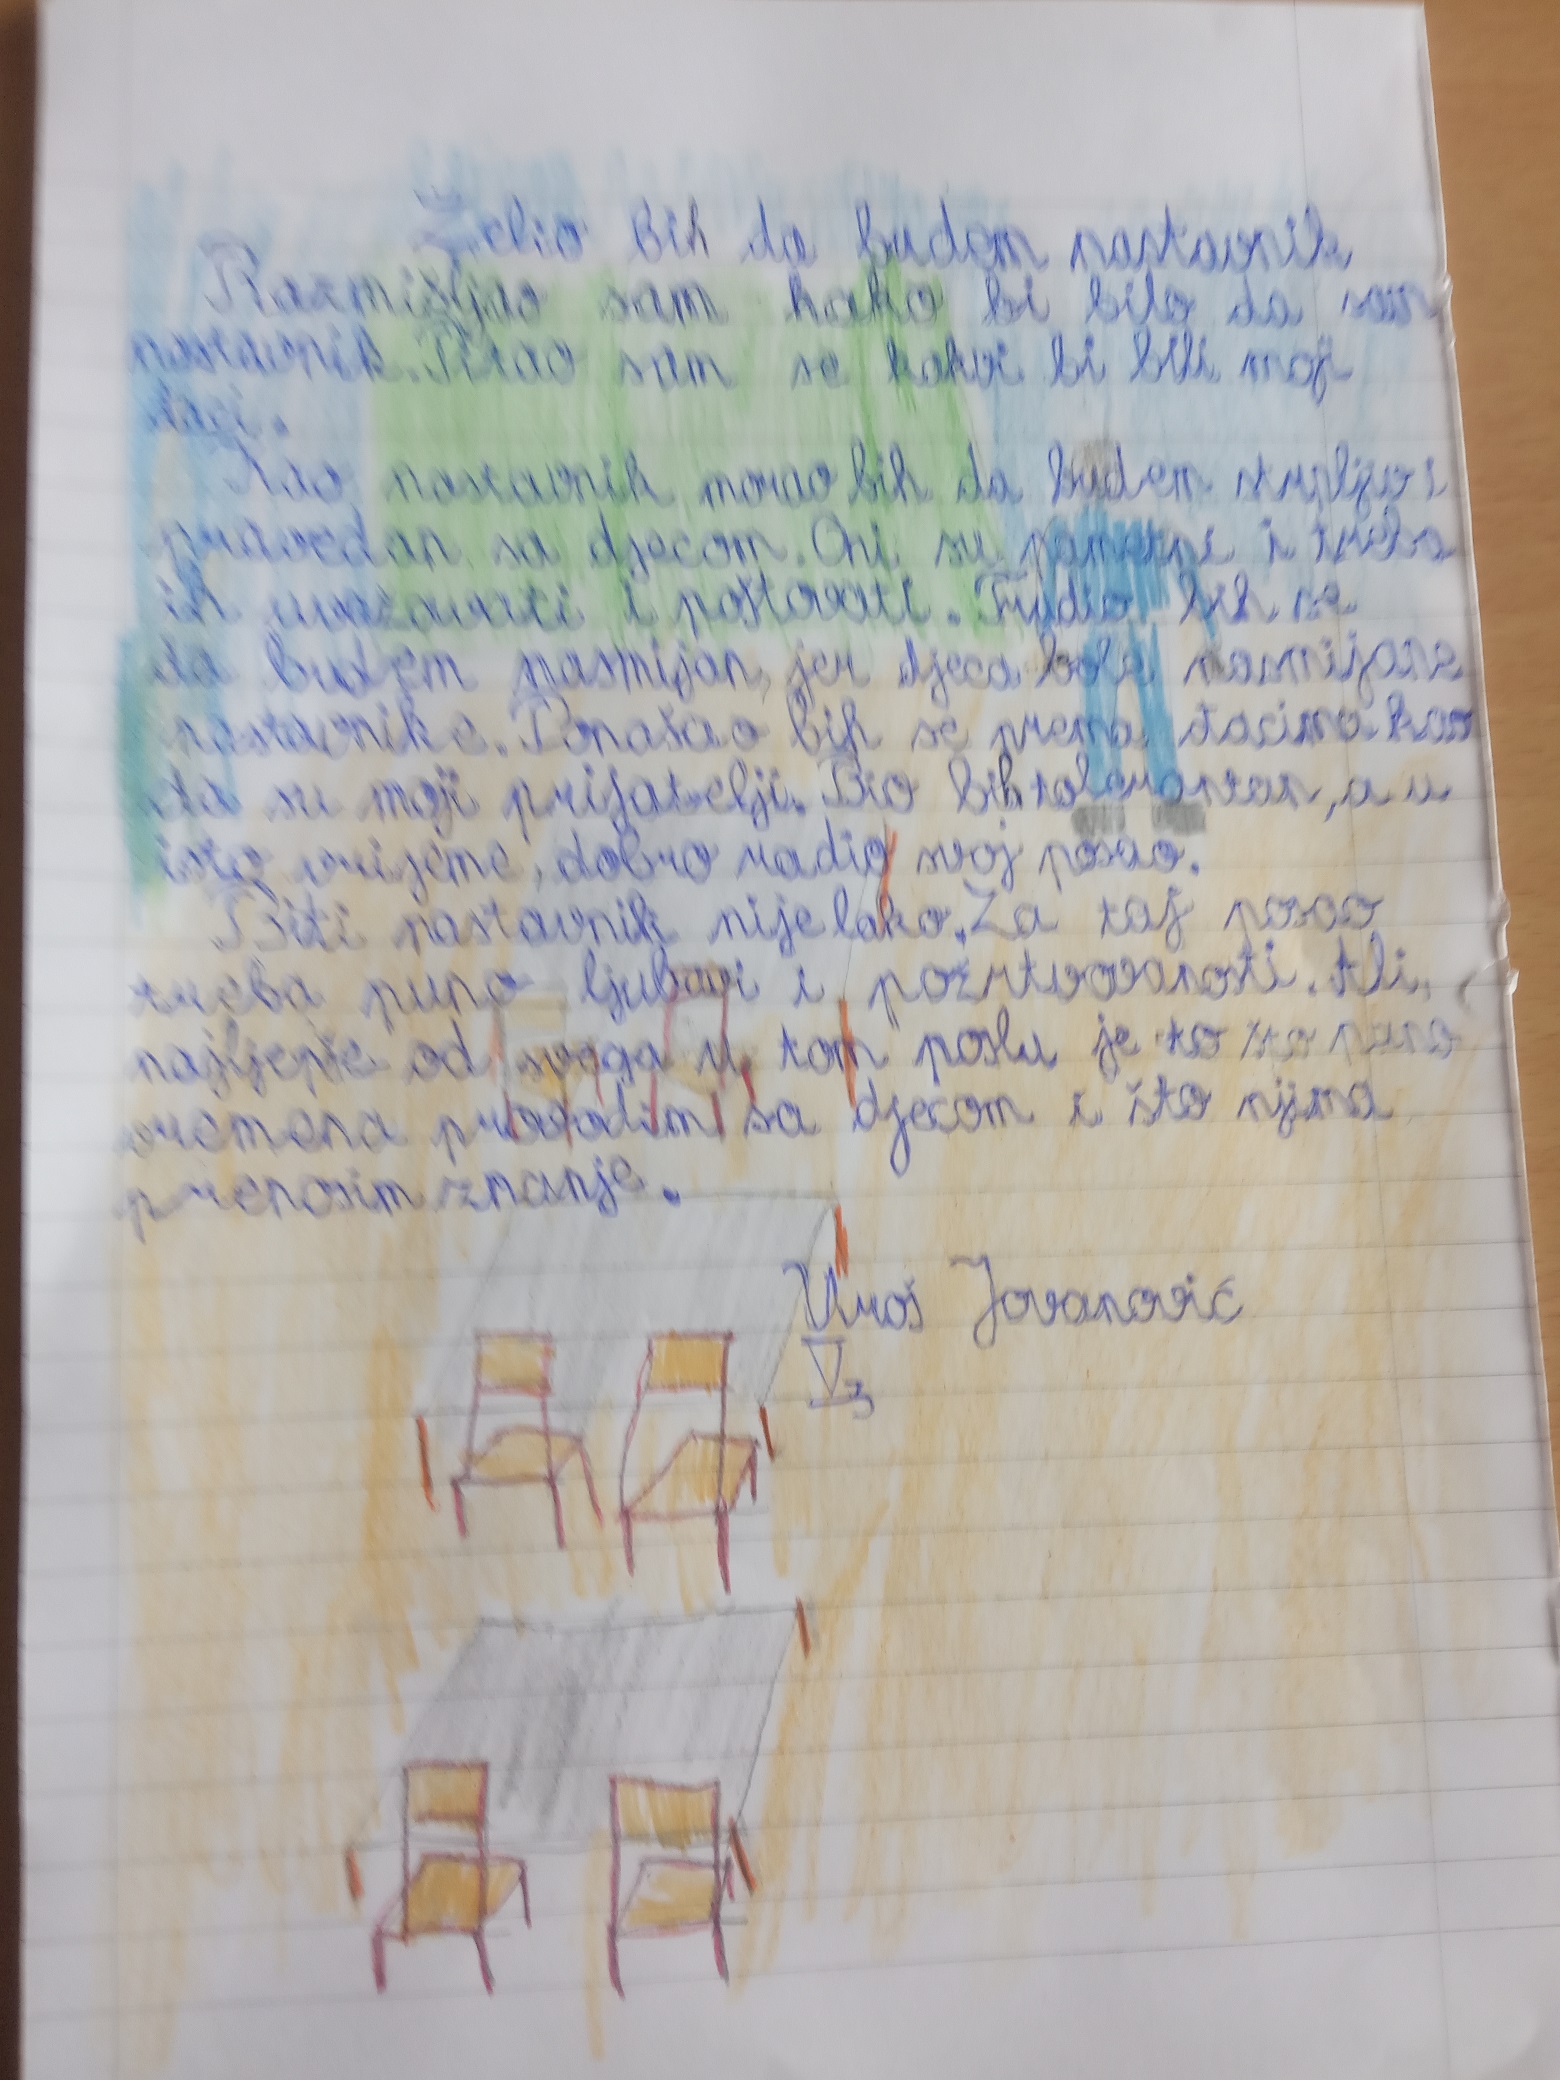 Želio bih da budem nastavnik
Razmišljao sam kako bi bilo da sam
nastavnik. Pitao sam se kakvi bi bili moji
đaci.
Kao nastavnik morao bih da budem strpljiv i
pravedan sa djecom. Oni su pametni i treba
ih uvažavati i poštovati. Trudio bih se
da budem nasmijan, jer djeca vole nasmijane
nastavnike. Ponašao bih se prema đacima kao
da su moji prijatelji. Bio bih tolerantan, a u
isto vrijeme, dobro radio svoj posao.
Biti nastavnik nije lako. Za taj posao
treba puno ljubavi i požrtvovanosti. Ali,
najljepše od svega u tom poslu je to što puno
vremena provodim sa djecom i što njima
prenosim znanje.
Uroš Jovanović
V3